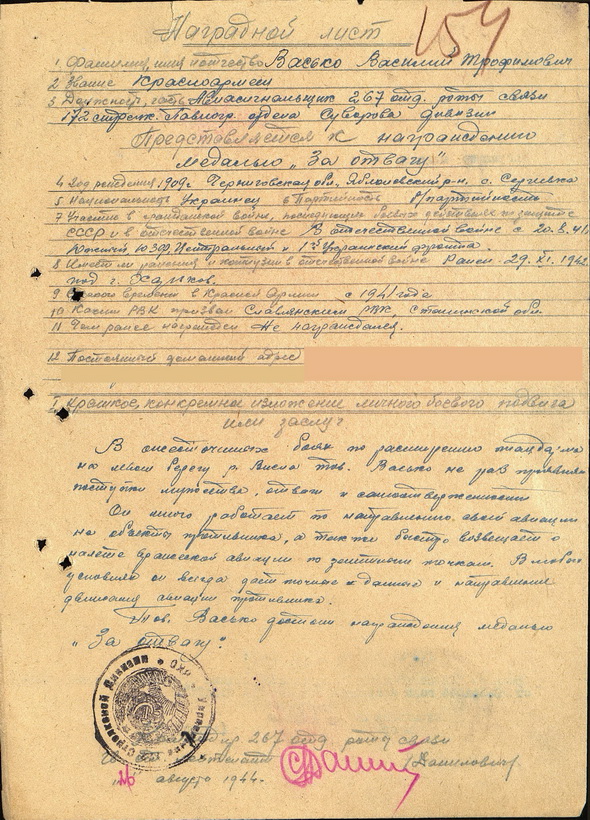 154
Наградной лист
1. Фамилия, имя и отчество Васько Василий Трофимович
2 Звание Красноармеец
3 Должность, часть Авиасигнальщик 267 отд. роты связи
172 стрелк. Павлогр. ордена Суворова дивизии
Представляется к награждению
медалью „За отвагу"
4. Год рождения 1909г. Черниговская обл., Яблоновский р-н. с.
5 Национальность Украинец 6 Партийность б/партийность
7 Участие в гражданской войне, последующих боевых действиях по защите
СССР и в отечественной войне В отечественной войне с 20.8.41
Южный ЮЗФ, Центральный и 1й Украинский фронта.
8 Имеет ли ранения и контузии в отечественной войне Ранен 29.XI.1942
под г. Харьков.
9 С какого времени в Красной Армии с 1941 года
10 Каким РВК призван Славянским РВК, Сталинской обл.
11 Чем ранее награжден Не награждался.
12 Постоянный домашний адрес
I. Краткое, конкретное изложение личного боевого подвига
или заслуг
В ожесточенных боях по расширению плацдарма
на левом берегу р. Висла тов. Васько не раз проявлял
поступки мужества, отваги и самоотверженности
Он много работает по направлению своей авиации
на объекты противника, а так же быстро возвещает о
налете вражеской авиации по зенитным точкам. В любых
условиях он всегда дает точные данные и направление
движения авиации противника.
Тов. Васько достоин награждения медалью
„За отвагу".
Стрелковой Дивизии
267 отд роты связи
Данилович
26 августа 1944.